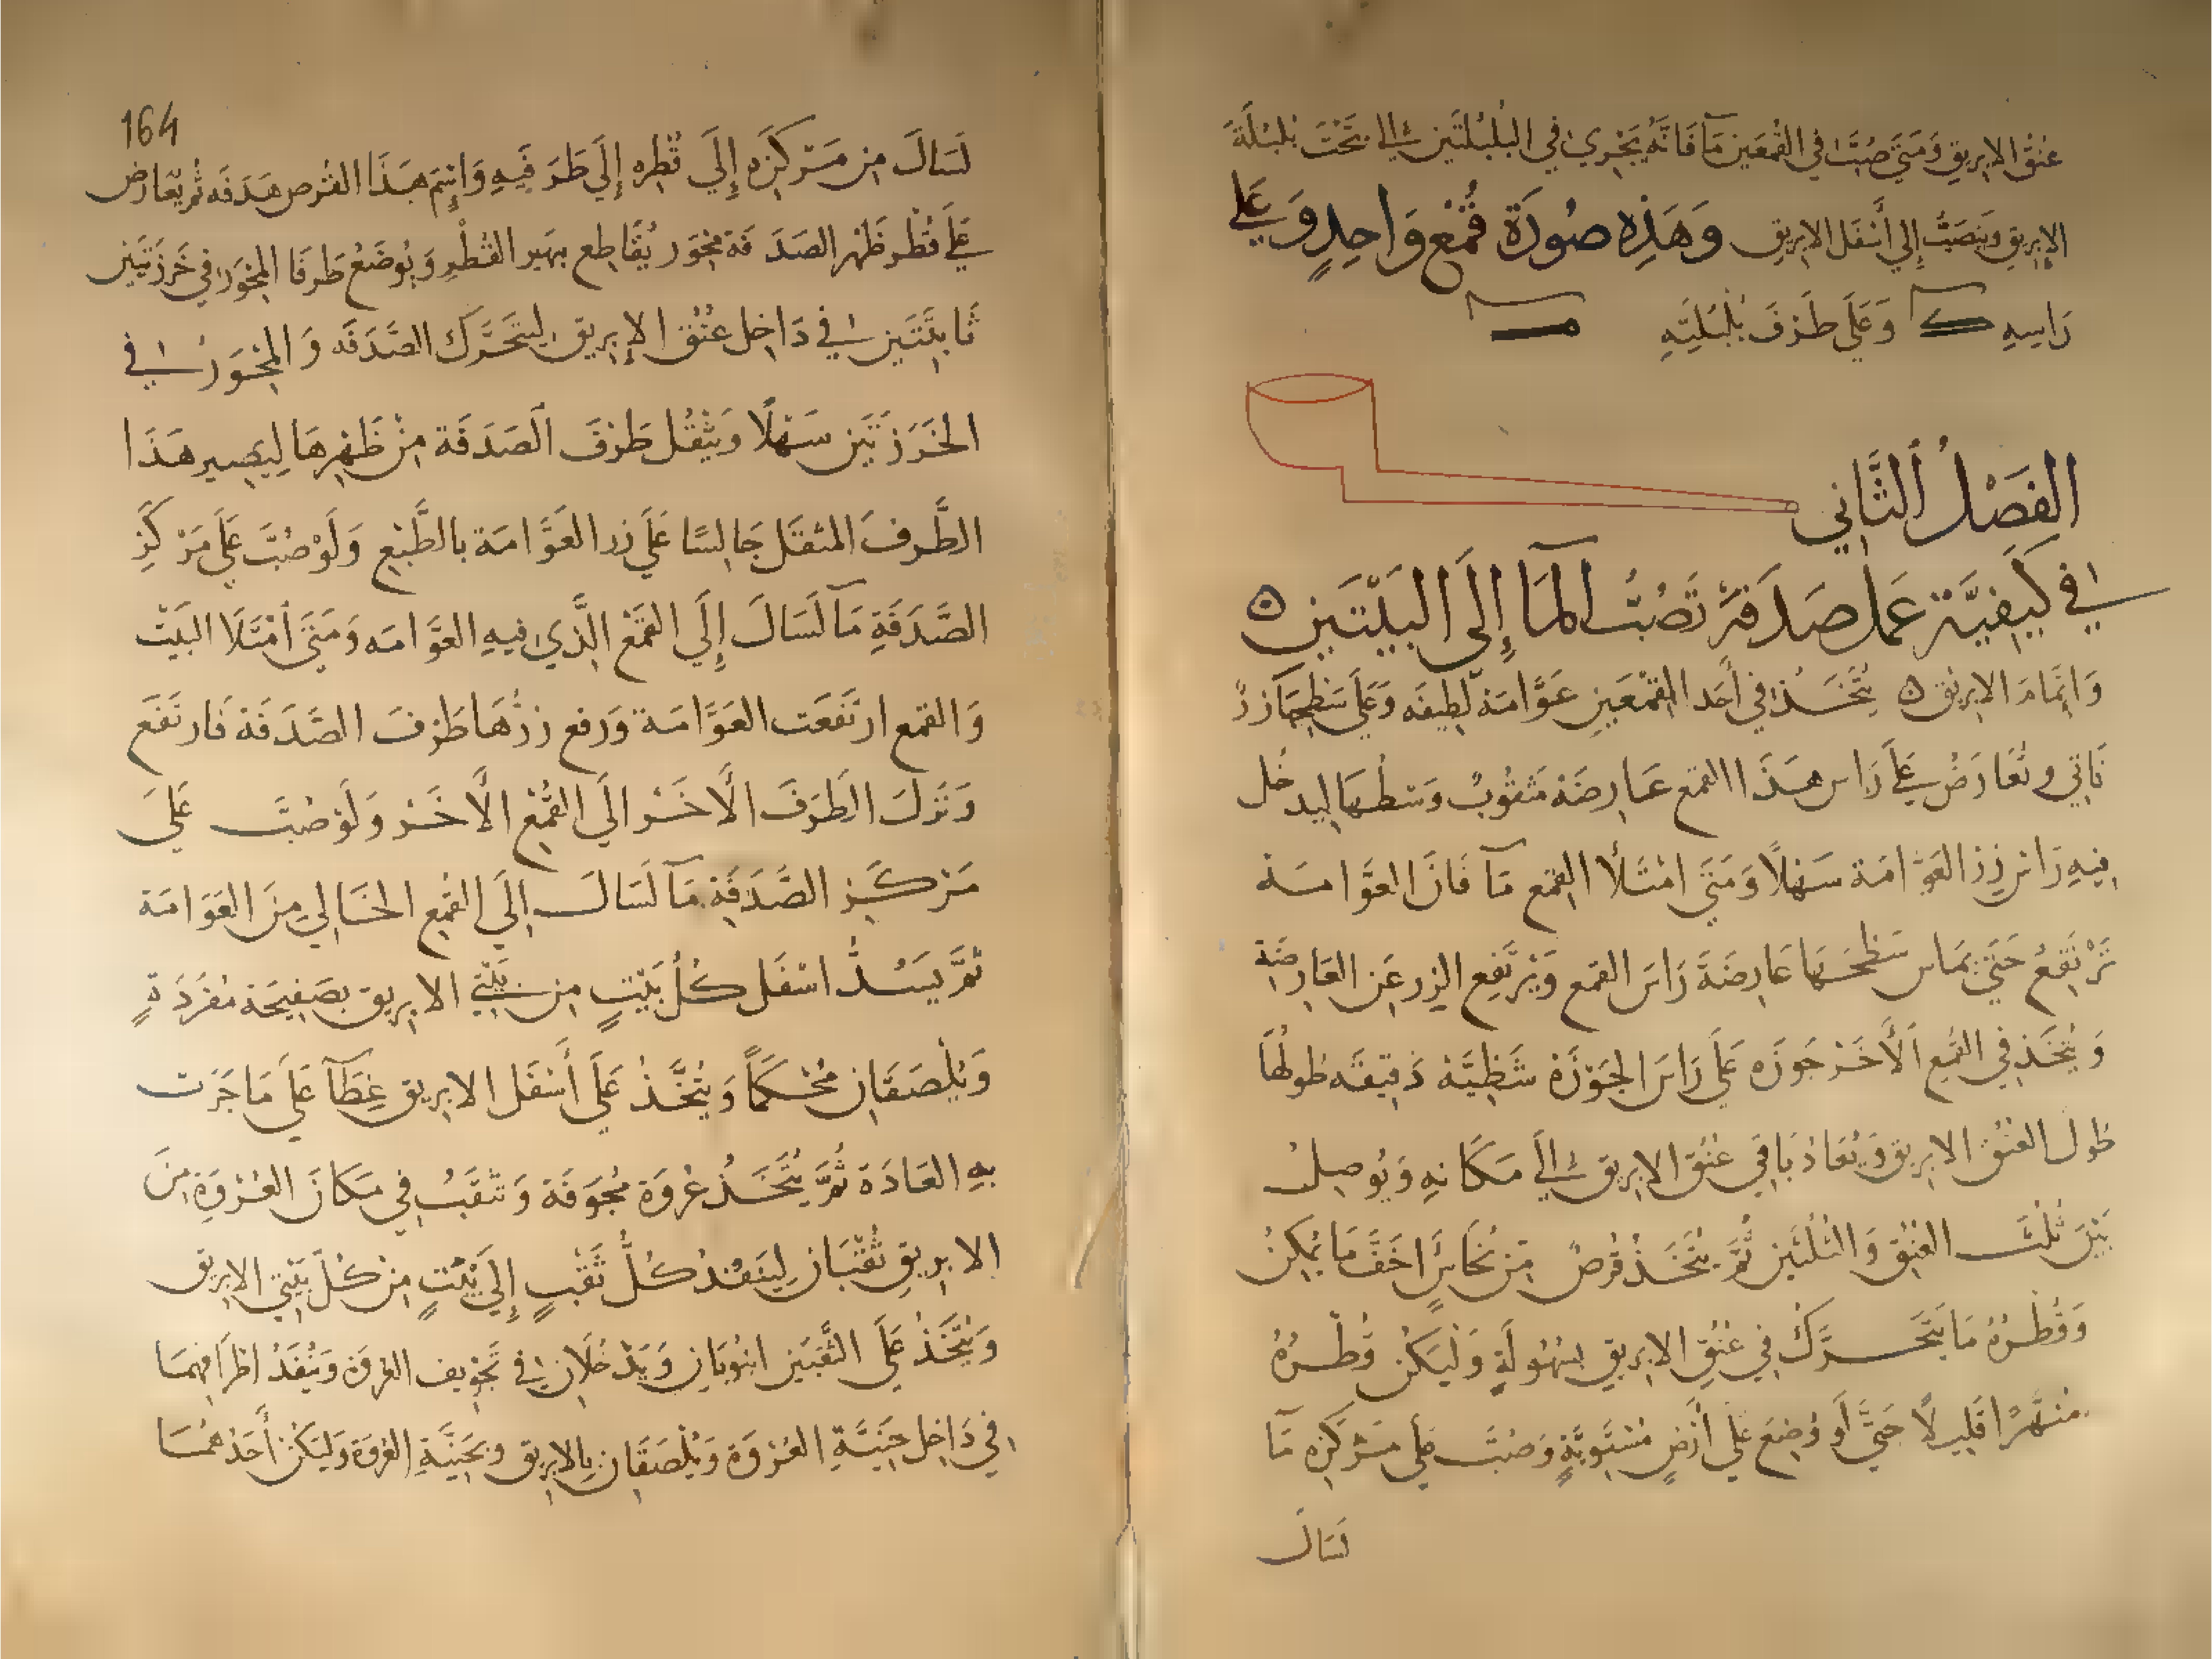 عُنُق الابريق وَمَتَى صُبَّ في القمعَين مَآ فَانَّهُ يَجْرِي في البُلبُلَتَين الي تَحْتَ بُلبُلَة
الإبريق وَيَنصَبُّ إلي أسْفَل الابريق وَهَذِه صُورَة قُمْع وَاحِدٍ وَعَلي
رَاسِهِ ك وَعَلَى طَرَفَ بُلْبُلَتِهِ
الفَصْلُ الثَّاني
في كَيفِيَّة عَمَل صَدَفَة تَصُبُّ المَآ إِلَى البَيْتَين ۞
وَاتمَام الابريق ۞ يُتَّخَذ في أحَد القمْعَينِ عَوَّامَة لَطِيفَه وَعَلَى سَطحِهَا زرّ
نَاتي وتُعَارَضُ عَلَى رَاس هَذَا القمع عَارِضَة مَثقُوبُ وَسْطهَا ليدخُل
فِيهِ رَاس زِرّ العَوَّامَة سَهْلًا وَمَتَى امْتَلأ القمع مَآ فَانَّ العوَّامَة
تَرْتَفِعُ حَتَّى يمَاس سَطحهَا عَارِضَة رَاسَ القمع وَيَرتَفِع الزر عَن العَارِضَة
وَيُتَّخَذ في القُمع الأَخَرْ جَوزَه عَلَى رَاسَ الجَوْزَة شَظِيَّة دَقِيقَه طُولُهَا
طُول العُنُق الابريق وَيُعَادُ بَاقي عُنُق الابريق الي مَكَانِهِ وَيُوصِلُ
بَيْنَ ثُلُثَ العُنُق وَالثُلثَين ثُمَّ يُتَّخَذُ قُرصُ مِن نُحَاسٍ اخَفَّ مَا يُمكِنُ
وَقُطْرُهُ مَا يَتَحَرَّكُ في عُنُق الابريق بسُهُولَةٍ وَليَكُن قُطْرُهُ
مُنهَّرًا قَلِيلًا حَتَّى لَو وُضِعَ عَلي أرْضٍ مُسْتَوِيَةٍ وَصُبَّ عَلي مَرْكَزِه مَآ
لسَالَ
164
لَسَالَ مِن مَرْكَزِه إلَي قُطِره إلَي طَرَفَيهِ وَاسْم هَذَا القُرص صَدَفَه ثم يُعَارض
عَلَى قُطْر ظَهْر الصَدَفَة مِحْوَر يُقَاطِع نهَير القُطْر وَيُوضَعُ طَرفَا المِحْوَر في خَرزَتَين
ثَابِتَتَين في دَاخِل عُنُق الإبريق ليَتَحَرَّك الصَّدَفَه وَالمِحْوَرُ في
الخَرَزتَين سَهْلًا وَيُثقَل طَرَفَ الصَدَفَة مِنْ ظَهْرِهَا لِيَصِير هَذَا
الطَّرفَ المثقَل جَالِسًا عَلَى زر العَوَّامَة بالطَّبْعِ وَلَوْ صُبَّ عَلَى مَرْكَزِ
الصَّدَفَةِ مَآ لَسَالَ إلَي القمْع الَّذي فيهِ العوَّامَه وَمَتَى أمْتَلَا البَيْت
وَالقمع ارتَفَعَت العَوَّامَة وَرَفع زرُّهَا طَرفَ الصَّدَفَة فَارتَفَع
وَنَزَلَ الطَرَفَ الأخَر الَي القُمْع الأخَر وَلَوْ صُبَّ عَلَى
مَرْكَز الصَّدَفَةِ مَآ لَسَالَ إلَي القُمع الخَالي مِنَ العَوَامَة
ثمَّ يَسُدُّ اسْفَل كُلّ بَيْتٍ مِن بَيْتَي الابريق بصَفِيحَة مُفْرَدَةٍ
وَيُلْصَقَان مُحْكَمًا وَيُتَّخَذُ عَلَى أسْفَل الابريق غِطَآ عَلَى مَا جَرَت
بهِ العَادَة ثُمَّ يُتَّخَذ عُروَة مُجَوفَة وَتثقَبُ في مَكَانَ العُرْوَةِ مِنَ
الابريق ثُقْبَان لِيَنفُذ كُلُّ ثَقْبٍ إلَي بَيْتٍ مِنْ كُلّ بَيْتَي الابريق
وَيُتَّخَذُ عَلَى الثَّقبَين انبُوبَان وَيَدْخُلَان في تَجْويف العُروَة وَيُنفَذُ اطرَافهمَا
في دَاخِل جَنبَةِ العُرْوَة وَيُلْصَقَان بالابريق وبجَنبَةِ العُروَة وَليَكُنْ أحَدُهُمَا